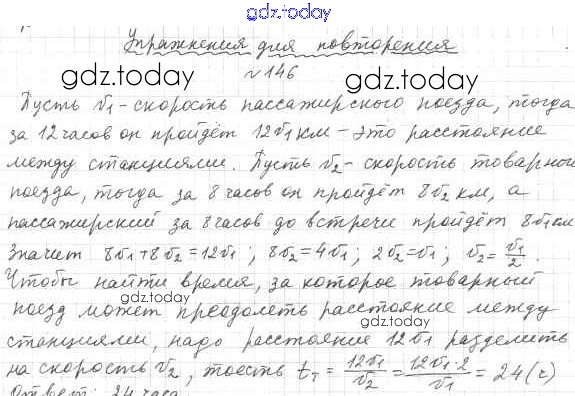 gdz.today
Упражнения для повторения
№146
gdz.today
gdz.today
Пусть v1 - скорость пассажирского поезда, тогда
за 12 часов он пройдёт 12v1 км - это расстояние
между станциями. Пусть v2 - скорость товарного
поезда, тогда за 8 часов он пройдёт 8v2 км, а
пассажирский за 8 часов до встречи пройдёт 8v1 км
Значит 8v1+8v2=12v1; 8v2=4v1; 2v2=v1; v2=v1/2.
Чтобы найти время, за которое товарный
gdz.today
поезд может преодолеть расстояние между
gdz.today
станциями, надо расстояние 12v1 разделить
на скорость v2, тоесть tт=12v1/v2=12v1·2/v1=24(ч)
Ответ: 24 часа.